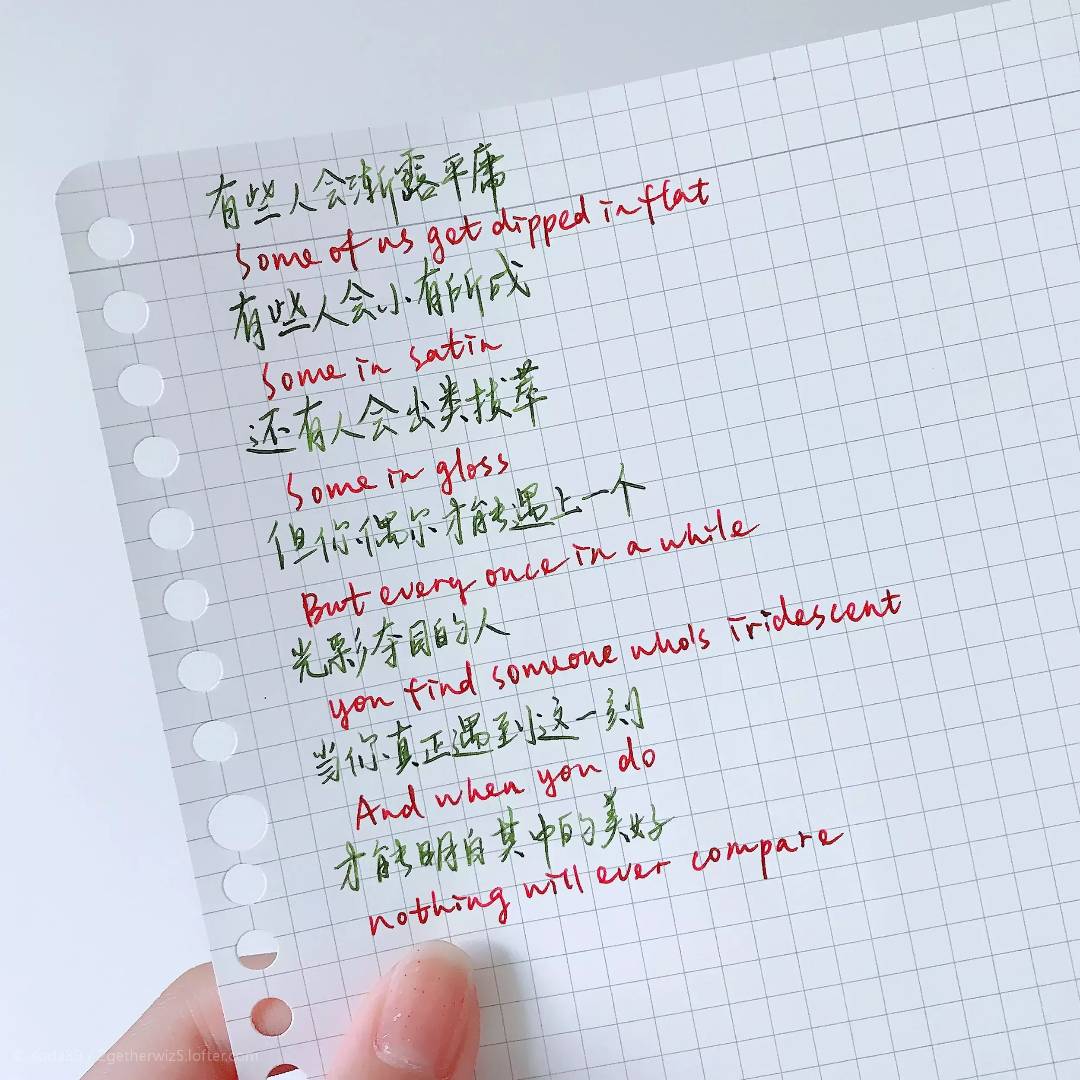 有些人会渐露平庸
Some of us get dipped in flat
有些人会小有所成
Some in satin
还有人会出类拔萃
Some in gloss
但你偶尔才能遇上一个
But every once in a while
光彩夺目的人
you find someone who's iridescent
当你真正遇到这一刻
And when you do
才能明白其中的美好
nothing will ever compare
2getherwiz5.lofter.com